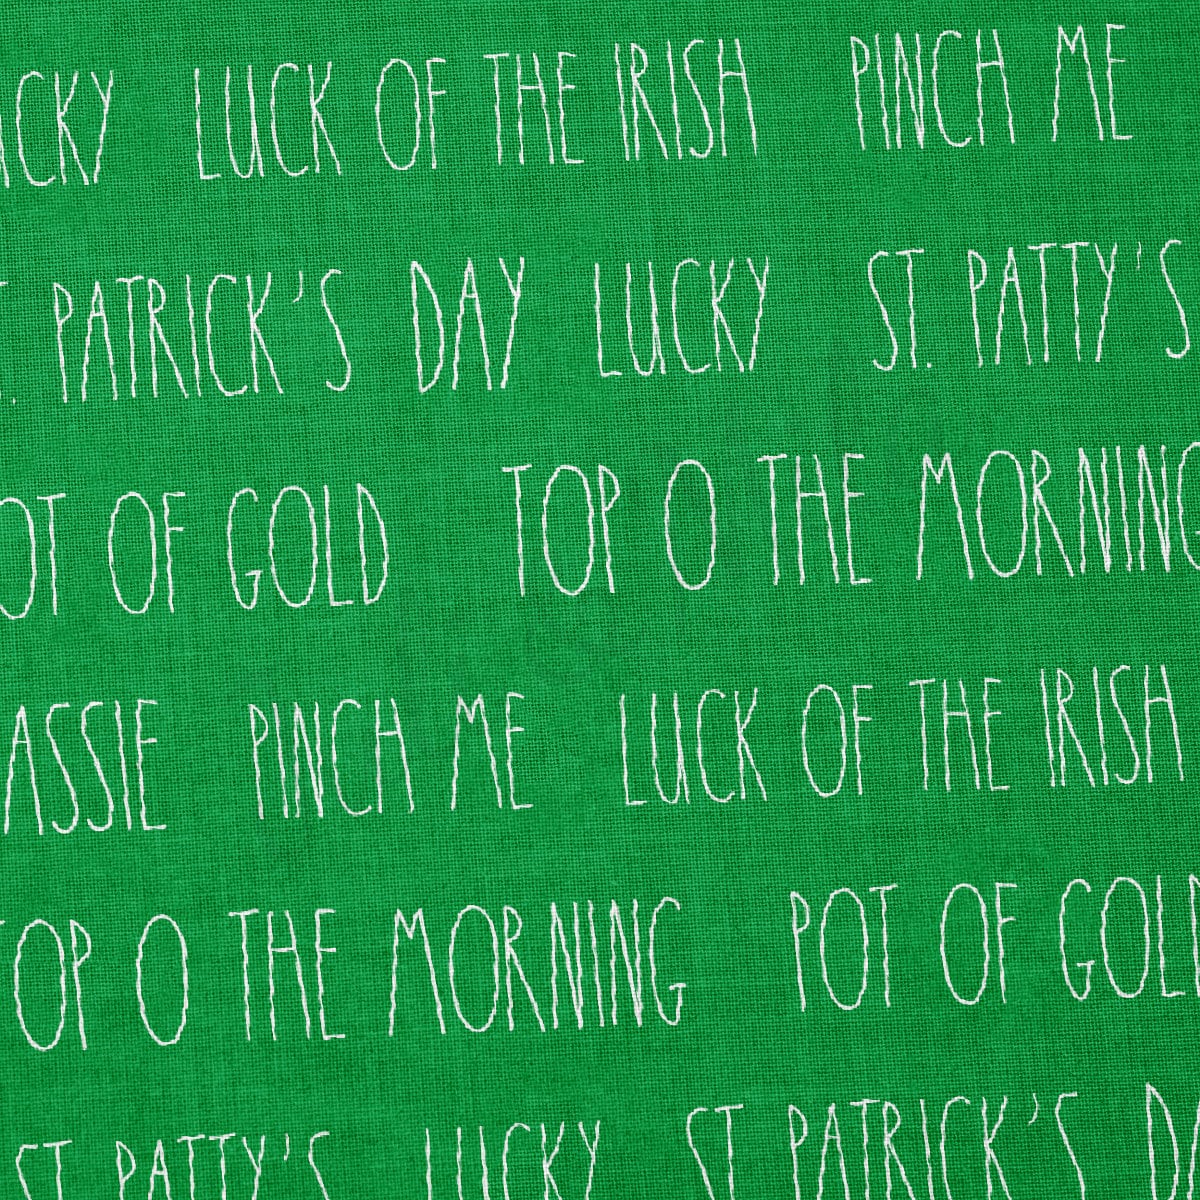 UCKY LUCK OF THE IRISH PINCH ME
T. PATRICK'S DAY LUCKY ST. PATTY'S
OT OF GOLD TOP O THE MORNING
ASSIE PINCH ME LUCK OF THE IRISH
TOP O THE MORNING POT OF GOLD
ST PATTY'S LUCKY ST PATRICK'S DA